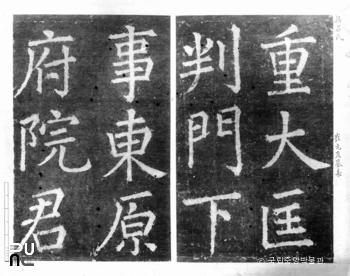 重大匡
判門下
事東原
府院君
© 국립중앙박물관